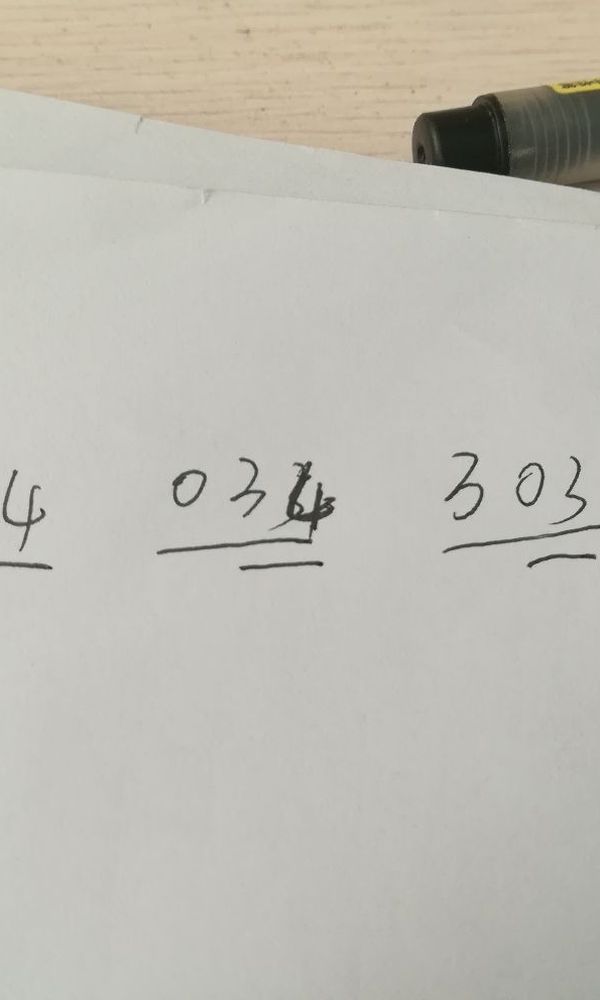 4 034 303